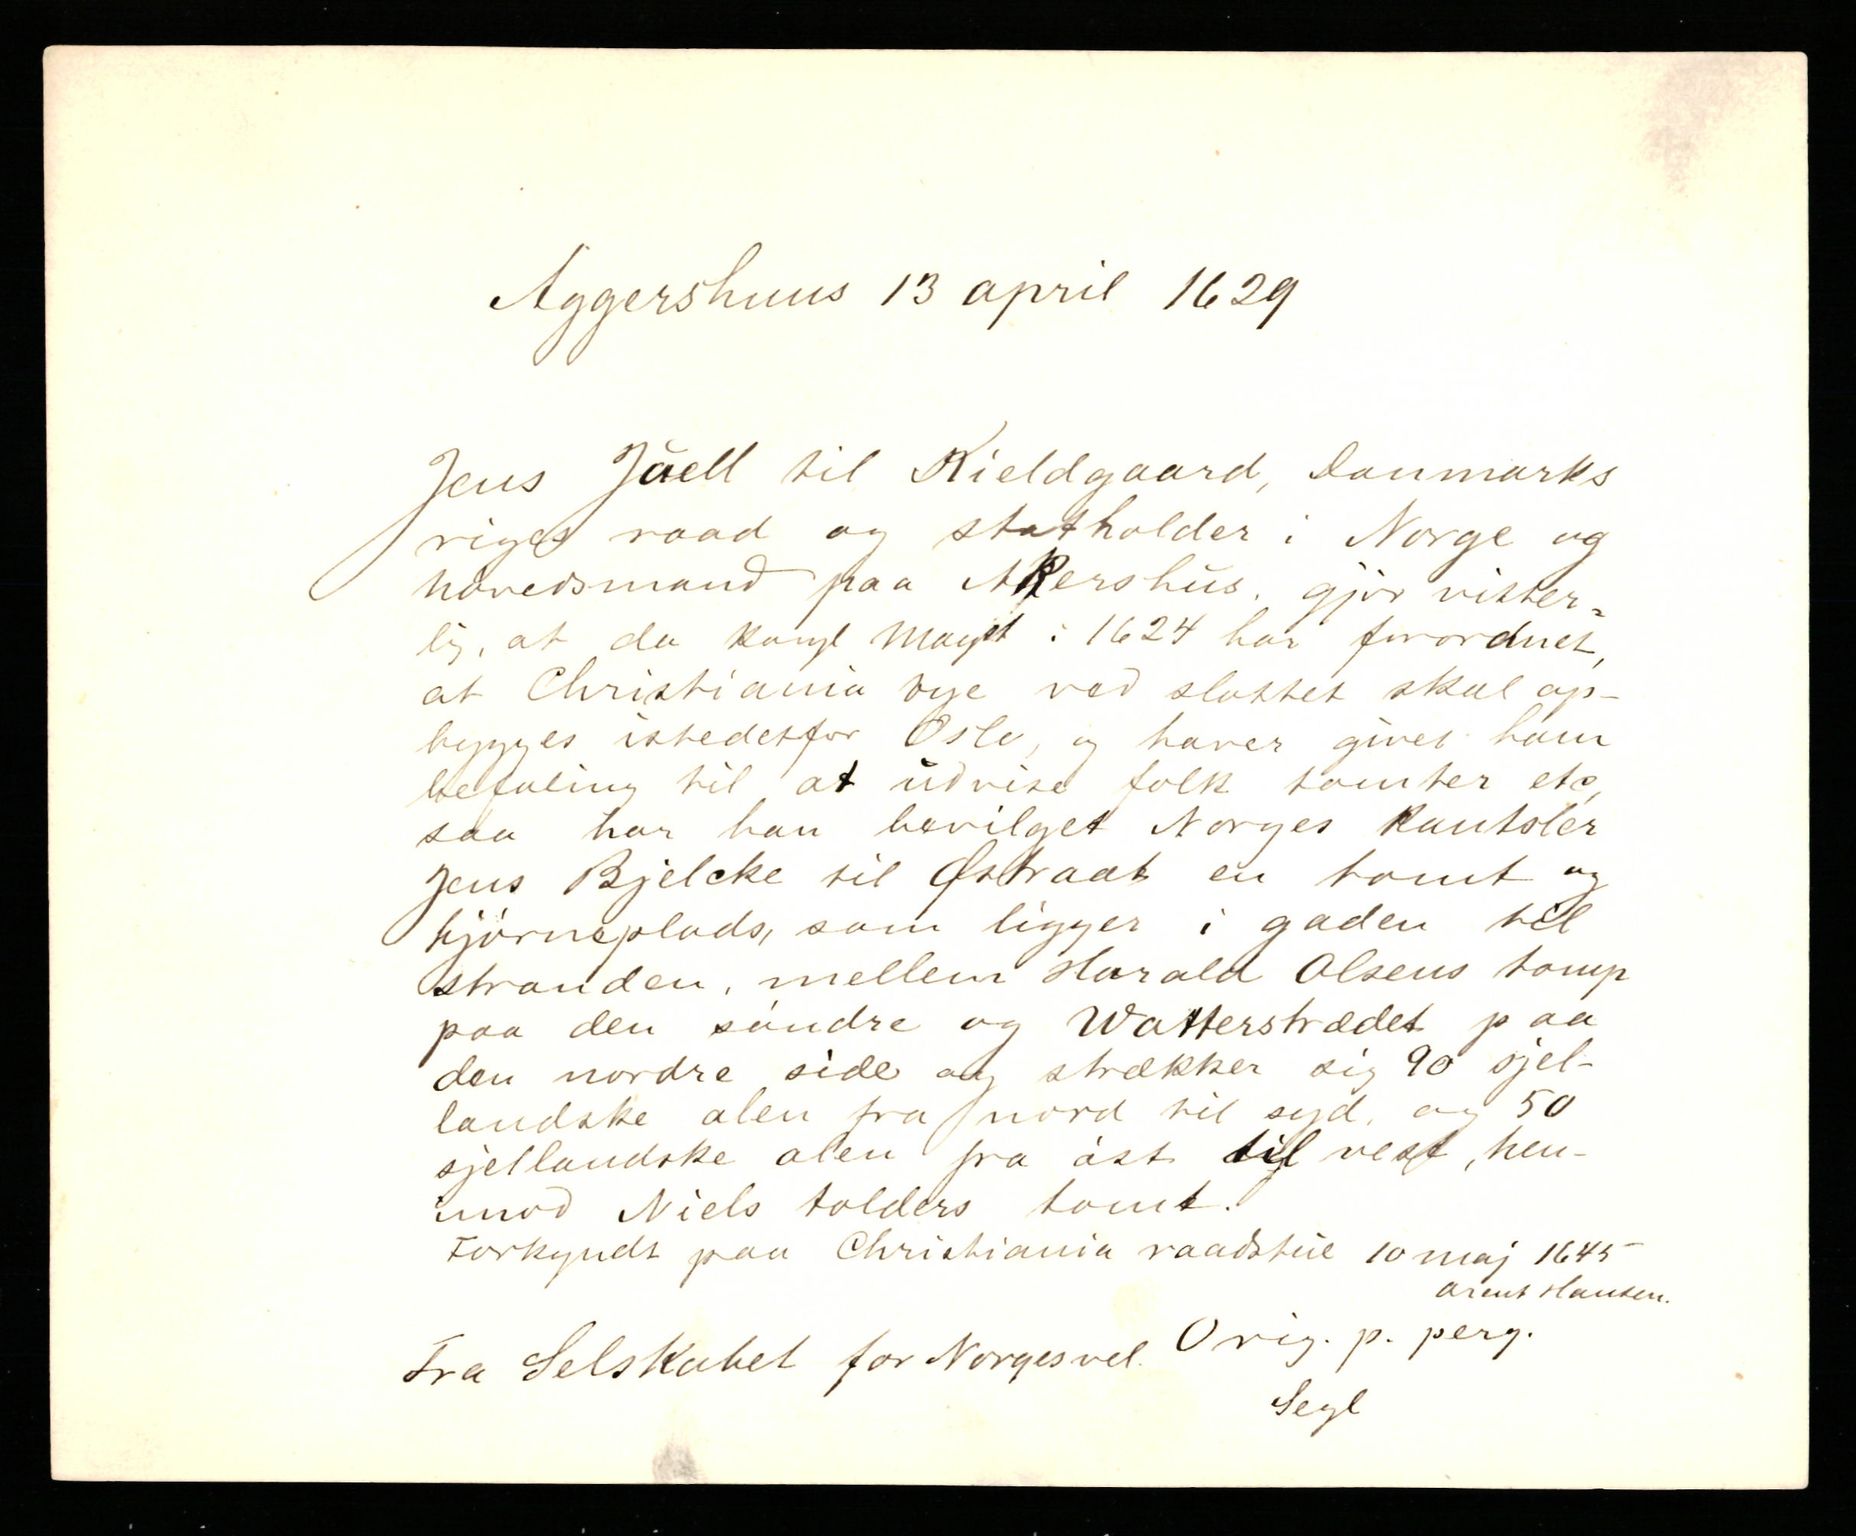 Aggershuus 13 april 1629
Jens Jŭell til Kieldgaard, Danmarks
riges raad og statholder i Norge og
hövedsmand paa Akershŭs, gjör vitter-
lig, at da kongl Mayst i 1624 har forordnet,
at Christiania bye ved slottet skal op-
bygges istedetfor Oslo, og haver givet ham
befaling til at ŭdvise folk tomter etc,
saa har han bevilget Norges kantsler
Jens Bjelcke til Østraat en tomt og
hjörneplads, som ligger i gaden til
stranden, mellem Harald Olsens tomp
paa den söndre og Watterstrædet paa
den nordre side og strækker sig 90 sjel-
landske alen fra nord til syd, og 50
sjellandske alen fra öst til vest, hen-
imod Niels tolders tomt.
Forkyndt paa Christiania raadstŭe 10 maj 1645
Arent Hansen.
Fra Selskabet for Norges vel. Orig. p. perg.
Segl